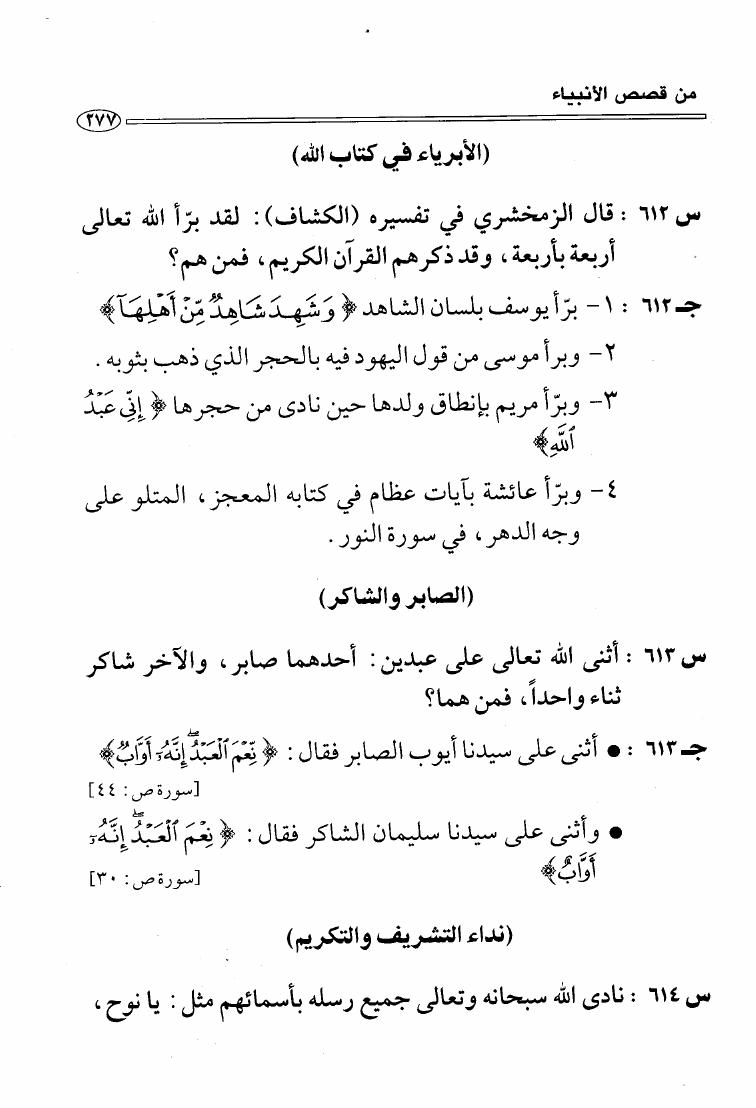 من قصص الأنبياء
٢٧٧
(الأبرياء في كتاب الله)
س ٦١٢ : قال الزمخشري في تفسيره (الكشاف): لقد برّأ الله تعالى
أربعة بأربعة، وقد ذكرهم القرآن الكريم، فمن هم؟
جـ ٦١٢ : ١- برّأ يوسف بلسان الشاهد ﴿وَشَهِدَ شَاهِدٌ مِّنْ أَهْلِهَآ﴾
٢- وبرأ موسى من قول اليهود فيه بالحجر الذي ذهب بثوبه.
٣- وبرّأ مريم بإنطاق ولدها حين نادى من حجرها ﴿إِنِّي عَبْدُ
ٱللَّهِ﴾
٤- وبرّأ عائشة بآيات عظام في كتابه المعجز، المتلو على
وجه الدهر، في سورة النور.
(الصابر والشاكر)
س ٦١٣ : أثنى الله تعالى على عبدين: أحدهما صابر، والآخر شاكر
ثناء واحداً، فمن هما؟
جـ ٦١٣ : ● أثنى على سيدنا أيوب الصابر فقال: ﴿نِّعْمَ ٱلْعَبْدُ ۖ إِنَّهُۥٓ أَوَّابٌ﴾
[سورة ص: ٤٤]
● وأثنى على سيدنا سليمان الشاكر فقال: ﴿نِعْمَ ٱلْعَبْدُ ۖ إِنَّهُۥٓ
أَوَّابٌ﴾
[سورة ص: ٣٠]
(نداء التشريف والتكريم)
س ٦١٤ : نادى الله سبحانه وتعالى جميع رسله بأسمائهم مثل: يا نوح،